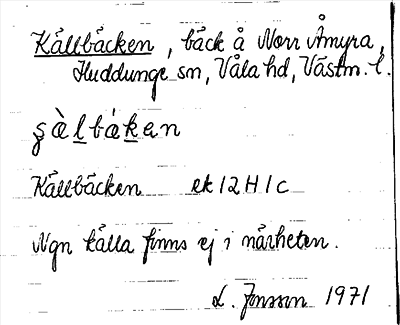 Källbäcken, bäck å Norr Åmyra,
Huddunge sn, Våla hd, Västm. l.
Källbäcken ek 12 H 1 c
Ngn källa finns ej i närheten.
L. Jonsson 1971